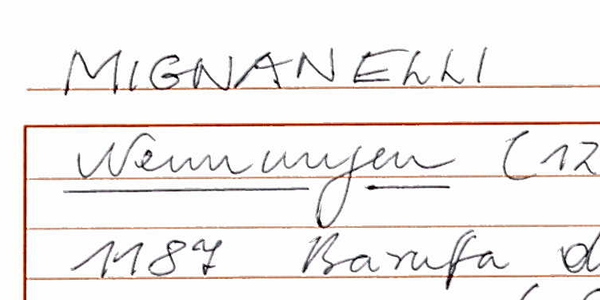 MIGNANELLI
Nennungen (12
1187 Baruffa d